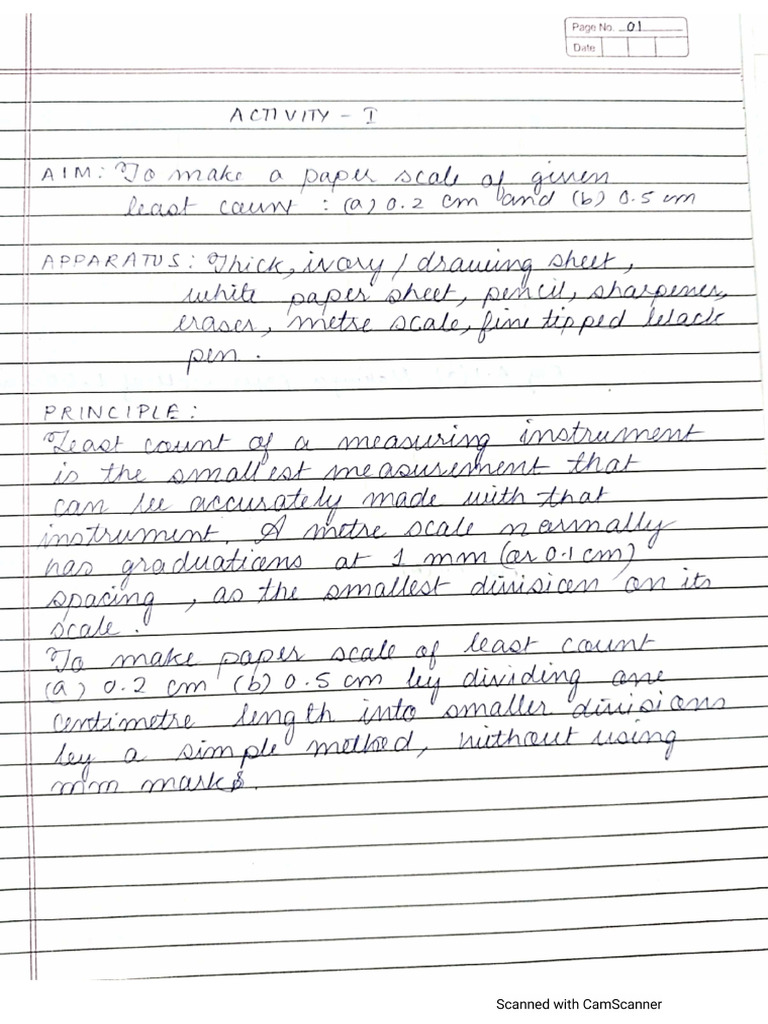 Page No. 01
Date
ACTIVITY - I
AIM: To make a paper scale of given
least count : (a) 0.2 cm and (b) 0.5 cm
APPARATUS: Thick, ivory / drawing sheet,
white paper sheet, pencil, sharpener,
eraser, metre scale, fine tipped black
pen.
PRINCIPLE:
Least count of a measuring instrument
is the smallest measurement that
can be accurately made with that
instrument. A metre scale normally
has graduations at 1 mm (or 0.1 cm)
spacing, as the smallest division on its
scale.
To make paper scale of least count
(a) 0.2 cm (b) 0.5 cm by dividing one
centimetre length into smaller divisions
by a simple method, without using
mm marks.
Scanned with CamScanner